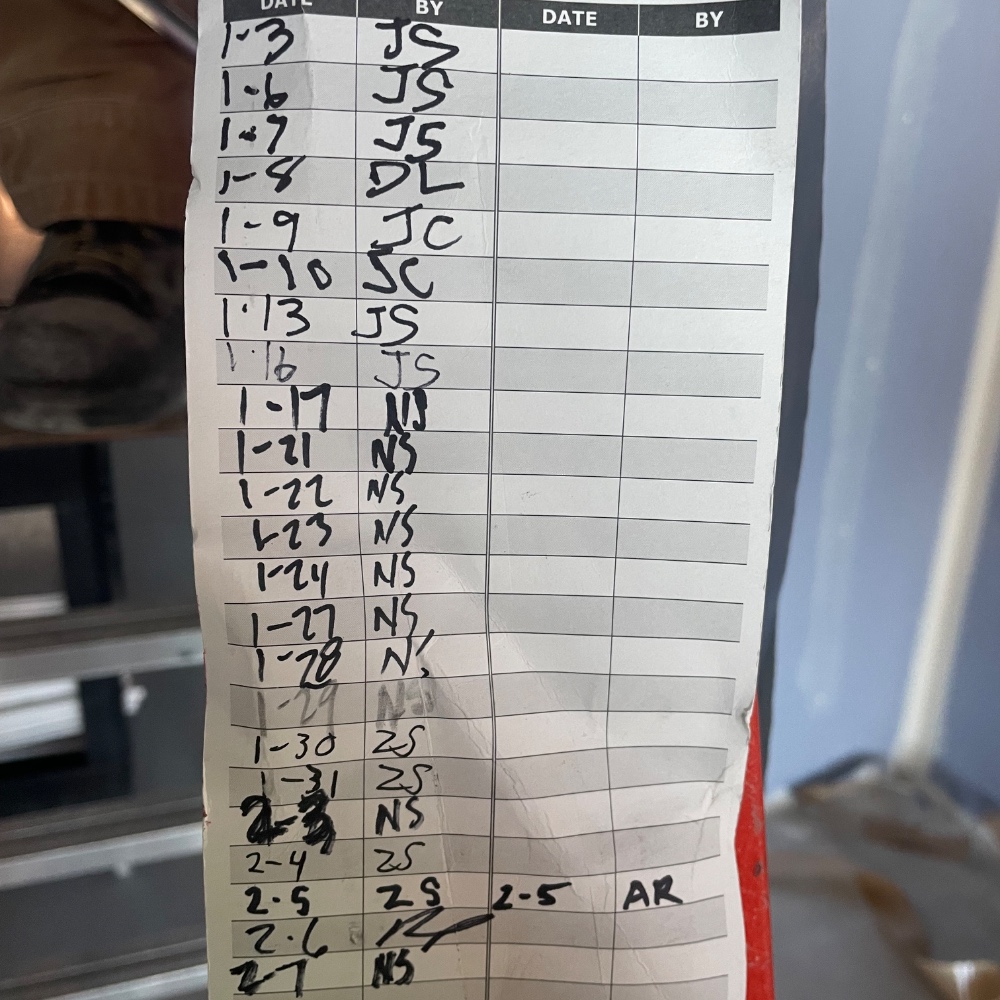 DATE BY DATE BY
1-3 JS
1-6 JS
1-7 JS
1-8 DL
1-9 JC
1-10 JC
1-13 JS
1-16 JS
1-17 NS
1-21 NS
1-22 NS
1-23 NS
1-24 NS
1-27 NS
1-28 NS
1-29 NS
1-30 ZS
1-31 ZS
2-3 NS
2-4 ZS
2-5 ZS 2-5 AR
2-6
2-7 NS